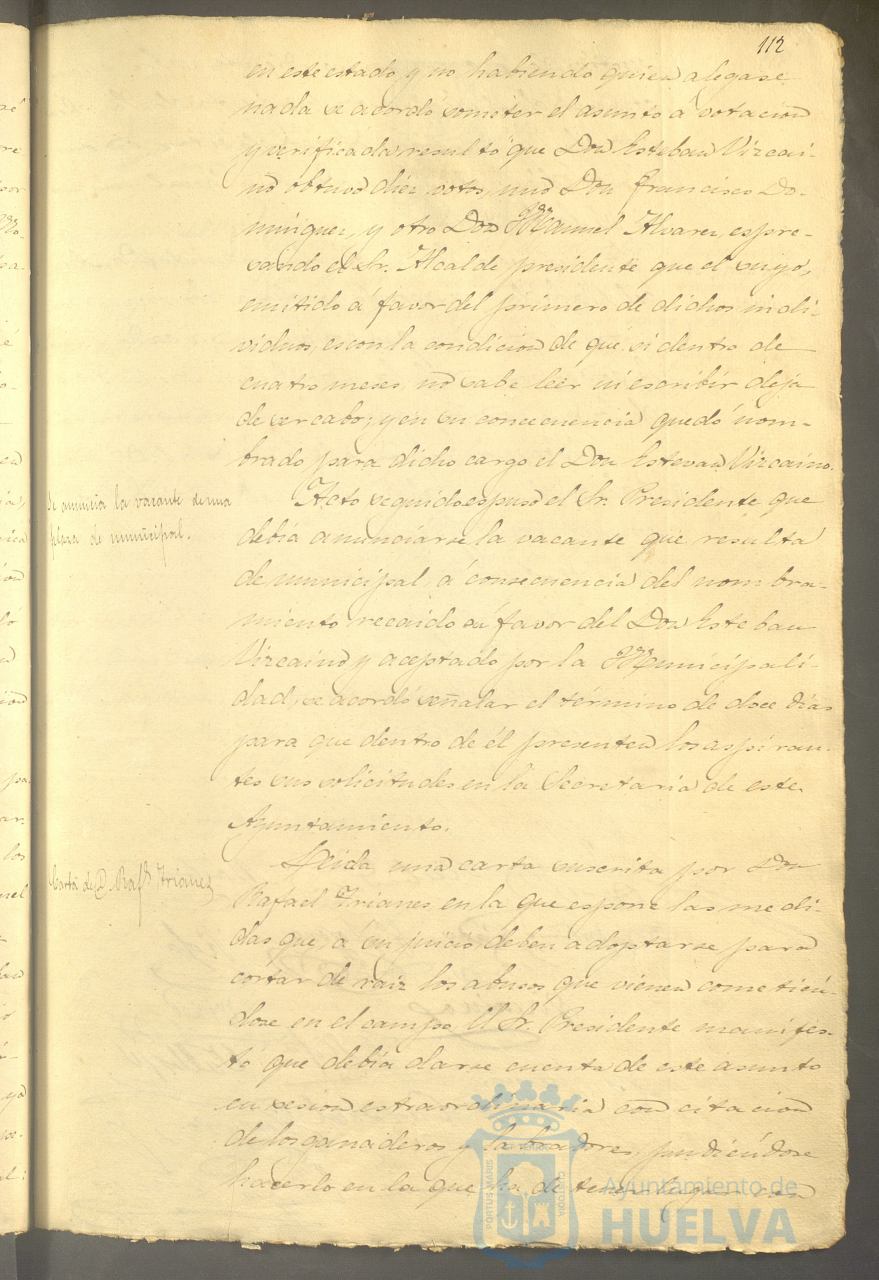 112
en este estado y no habiendo quien alegase
nada se acordó someter el asunto á votacion
y verificada resultó que Don Esteban Vizcai-
no obtuvo diez votos, uno Don Francisco Do-
minguez, y otro Don Manuel Alvarez, espre-
sando el Sr. Alcalde presidente que el suyo,
emitido á favor del primero de dichos indi-
viduos, es con la condicion de que si dentro de
cuatro meses no sabe leer ni escribir deja
de ser cabo; y en su consecuencia quedó nom-
brado para dicho cargo el Don Estevan Vizcaino.
Se anuncia la vacante de una
plaza de municipal.
Acto seguido espuso el Sr. Presidente que
debia anunciarse la vacante que resulta
de municipal á consecuencia del nombra-
miento recaido á favor del Don Esteban
Vizcaino y aceptado por la Municipali-
dad, se acordó señalar el término de doce dias
para que dentro de él presenten los aspiran-
tes sus solicitudes en la Secretaria de este
Ayuntamiento.
Carta de D. Raf.l Trianes
Leida una carta suscrita por Don
Rafael Trianes en la que espone las medi-
das que, á su juicio, deben adoptarse para
cortar de raiz los abusos que vienen cometién-
dose en el campo. El Sr. Presidente manifes-
tó que debia darse cuenta de este asunto
en sesion estraordinaria con citacion
de los ganaderos y labradores, pudiéndose
hacerlo en la que ha de tener lugar con
PORTUS MARIS
CUSTODIA
Ayuntamiento de
HUELVA